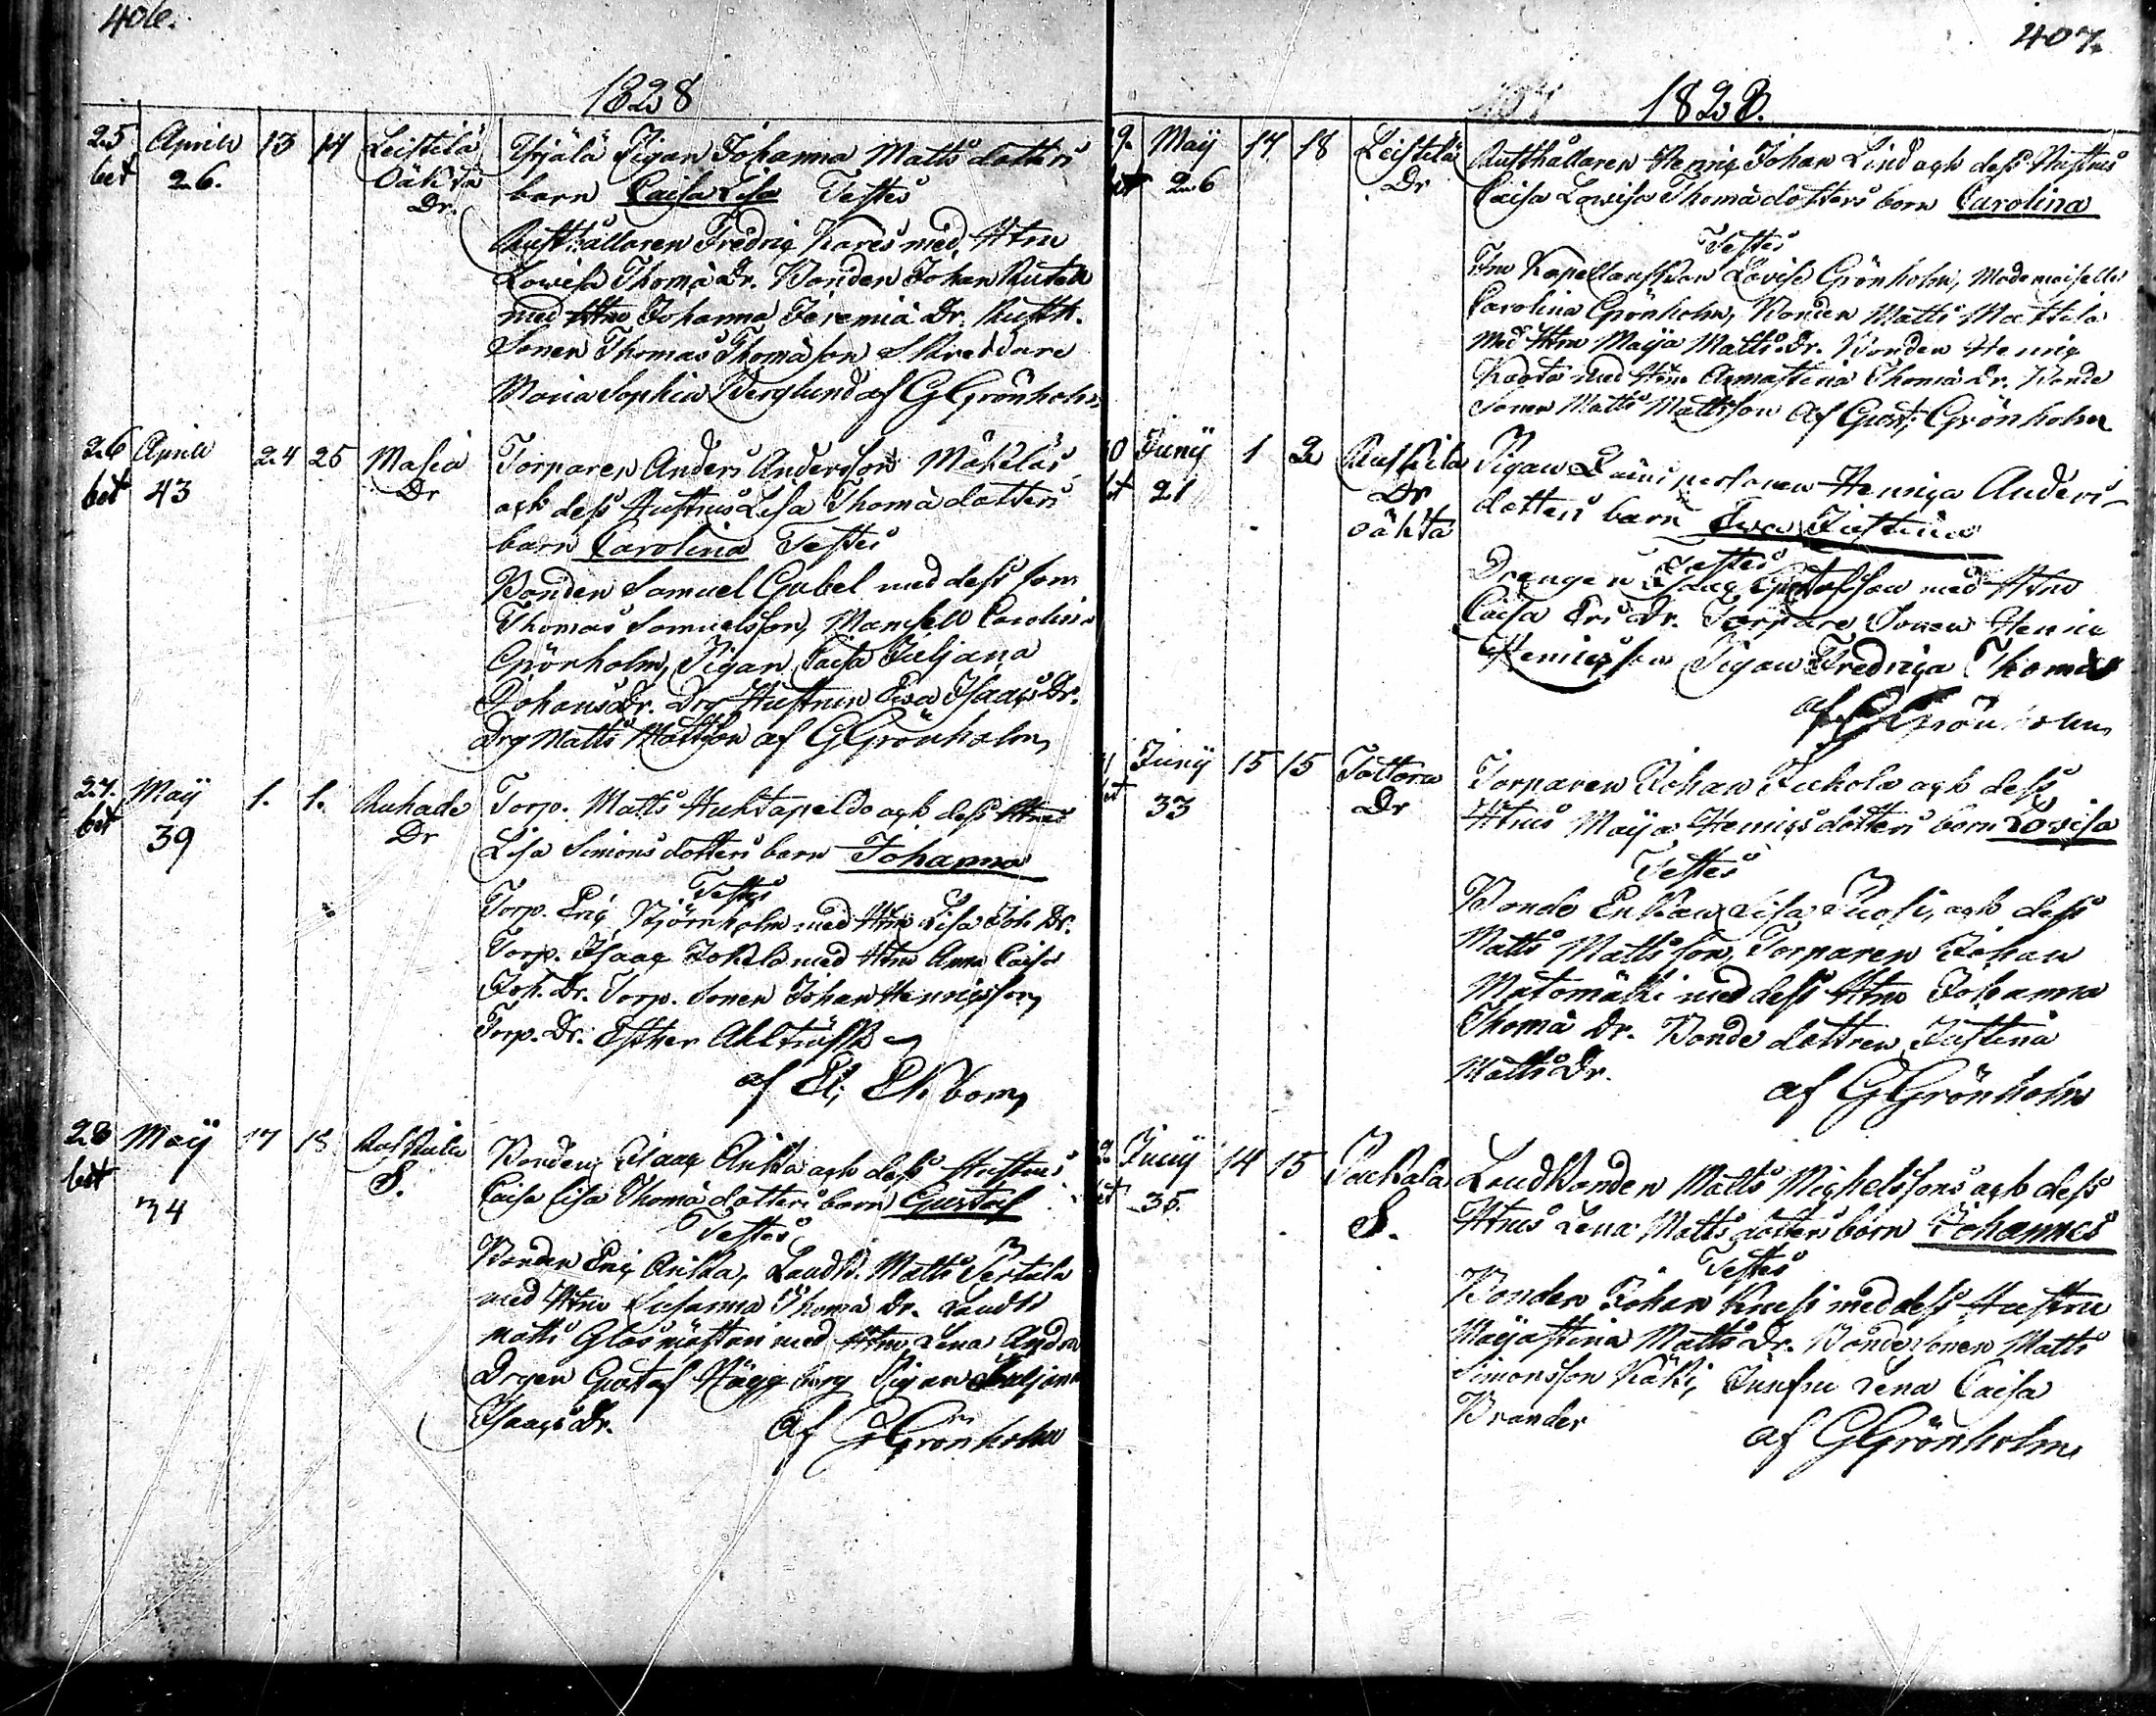 406.
1828
25 Aprill 13 14 Leistilä Thjälä Pigan Johanna Matts dotters
bet 26. Oäkta Dr. barn Caisa Lisa Testes
Rusthållaren Fredriq Karès med Htru
Lowisa Thomä Dr. Bonden Johan Rutall
med Htru Johanna Jeremiä Dr. Rusth.
Sonen Thomas Thomäson Skreddare
Maria Sophia Berglund af G Grönholm
26 Aprill 24 25 Masia Torparen Anders Andersson Mäkeläs
bet 43 Dr och dess Hustrus Lisa Thomä dotters
barn Carolina Testes
Bonden Samuel Gabel med dess son
Thomas Samuelsson, Mamsell Carolina
Grönholm, Pigan Caisa Juljana
Johans Dr. Drg Hustrun Ewa Isaacs Dr.
Drg Matts Mattson af G Grönholm
27. May 1. 1. Ruhade Torp. Matts Huhtapeldo och dess Htrus
bet 39 Dr Lisa Simons dotters barn Johanna
Testes
Torp. Eriq Björnholm med Htru Lisa Joh Dr.
Torp. Isaac Jokela med Htru Anna Caisa
Joh. Dr. Torp. Sonen Johan Henriqsson
Torp. Dr. Esther Ahlträsk
af El; Ekbom
28 May 17 18 Bonden Isaac Anka och dess Hustrus
bet 34 S. Caisa Lisa Thomä dotters barn Gustaf
Testes
Bonden Eriq Anka, Landb. Matts Pertula
med Htru Susanna Thomä Dr. Landb
Matts Glasmästari med Htru Lena Andra
Drgen Gustaf Hägg berg Pigan Juljana
Isaacs Dr. af G Grönholm
407.
1828.
9. May 17 18 Leistilä Rusthållaren Henriq Johan Lind och dess Hustrus
bet 26 Dr Caisa Lowisa Thomä dotters barn Carolina
Testes
Fru Kapellanskan Lovisa Grönholm, Mademoiselle
Carolina Grönholm, Bonden Matts Mattila
med Htru Maija Matts Dr. Bonden Henriq
Kaota med Htru Annastina Thomä Dr. Bonde
Sonen Matts Mattsson af Gust; Grönholm
0 Junij 1 2 Pigan Henrica Anders
bet 21 Dr oäkta dotters barn Ewa Justina
Testes
Drengen Isaac Gustafsson med Htru
Caisa Eris Dr. Torpare Sonen Henric
Henricsson Pigan Fredrica Thomas
af G Grönholm
1 Junij 15 15 Tottora Torparen Johan Juckola och dess
bet 33 Dr Htrus Maija Henrics dotters barn Lovisa
Testes
Bonde Enkan Lisa Susi, och dess
Matts Mattsson, Torparen Johan
Mätomäki med dess Htru Johanna
Thomä Dr. Bonde dottren Justina
Matts Dr. af G Grönholm
2. Junij 14 15 Packala Landbonden Matts Michelssons och dess
bet 35. S. Htrus Lena Matts dotters barn Johannes
Testes
Bonden Johan Knusi med dess Hustru
Maijastina Matts Dr. Bonde sonen Matts
Simonsson Käki, Junfru Lena Caisa
Brander af G Grönholm